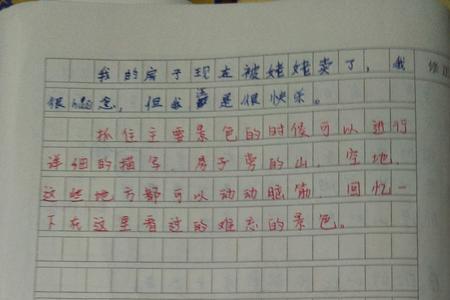 我的房子现在被姥姥卖了,我
很想念,但我还是很快乐。
抓住主要景色的时候可以进行
详细的描写。房子旁的山,空地,
这些地方都可以动动脑筋,回忆一
下在这里看过的难忘的景色。